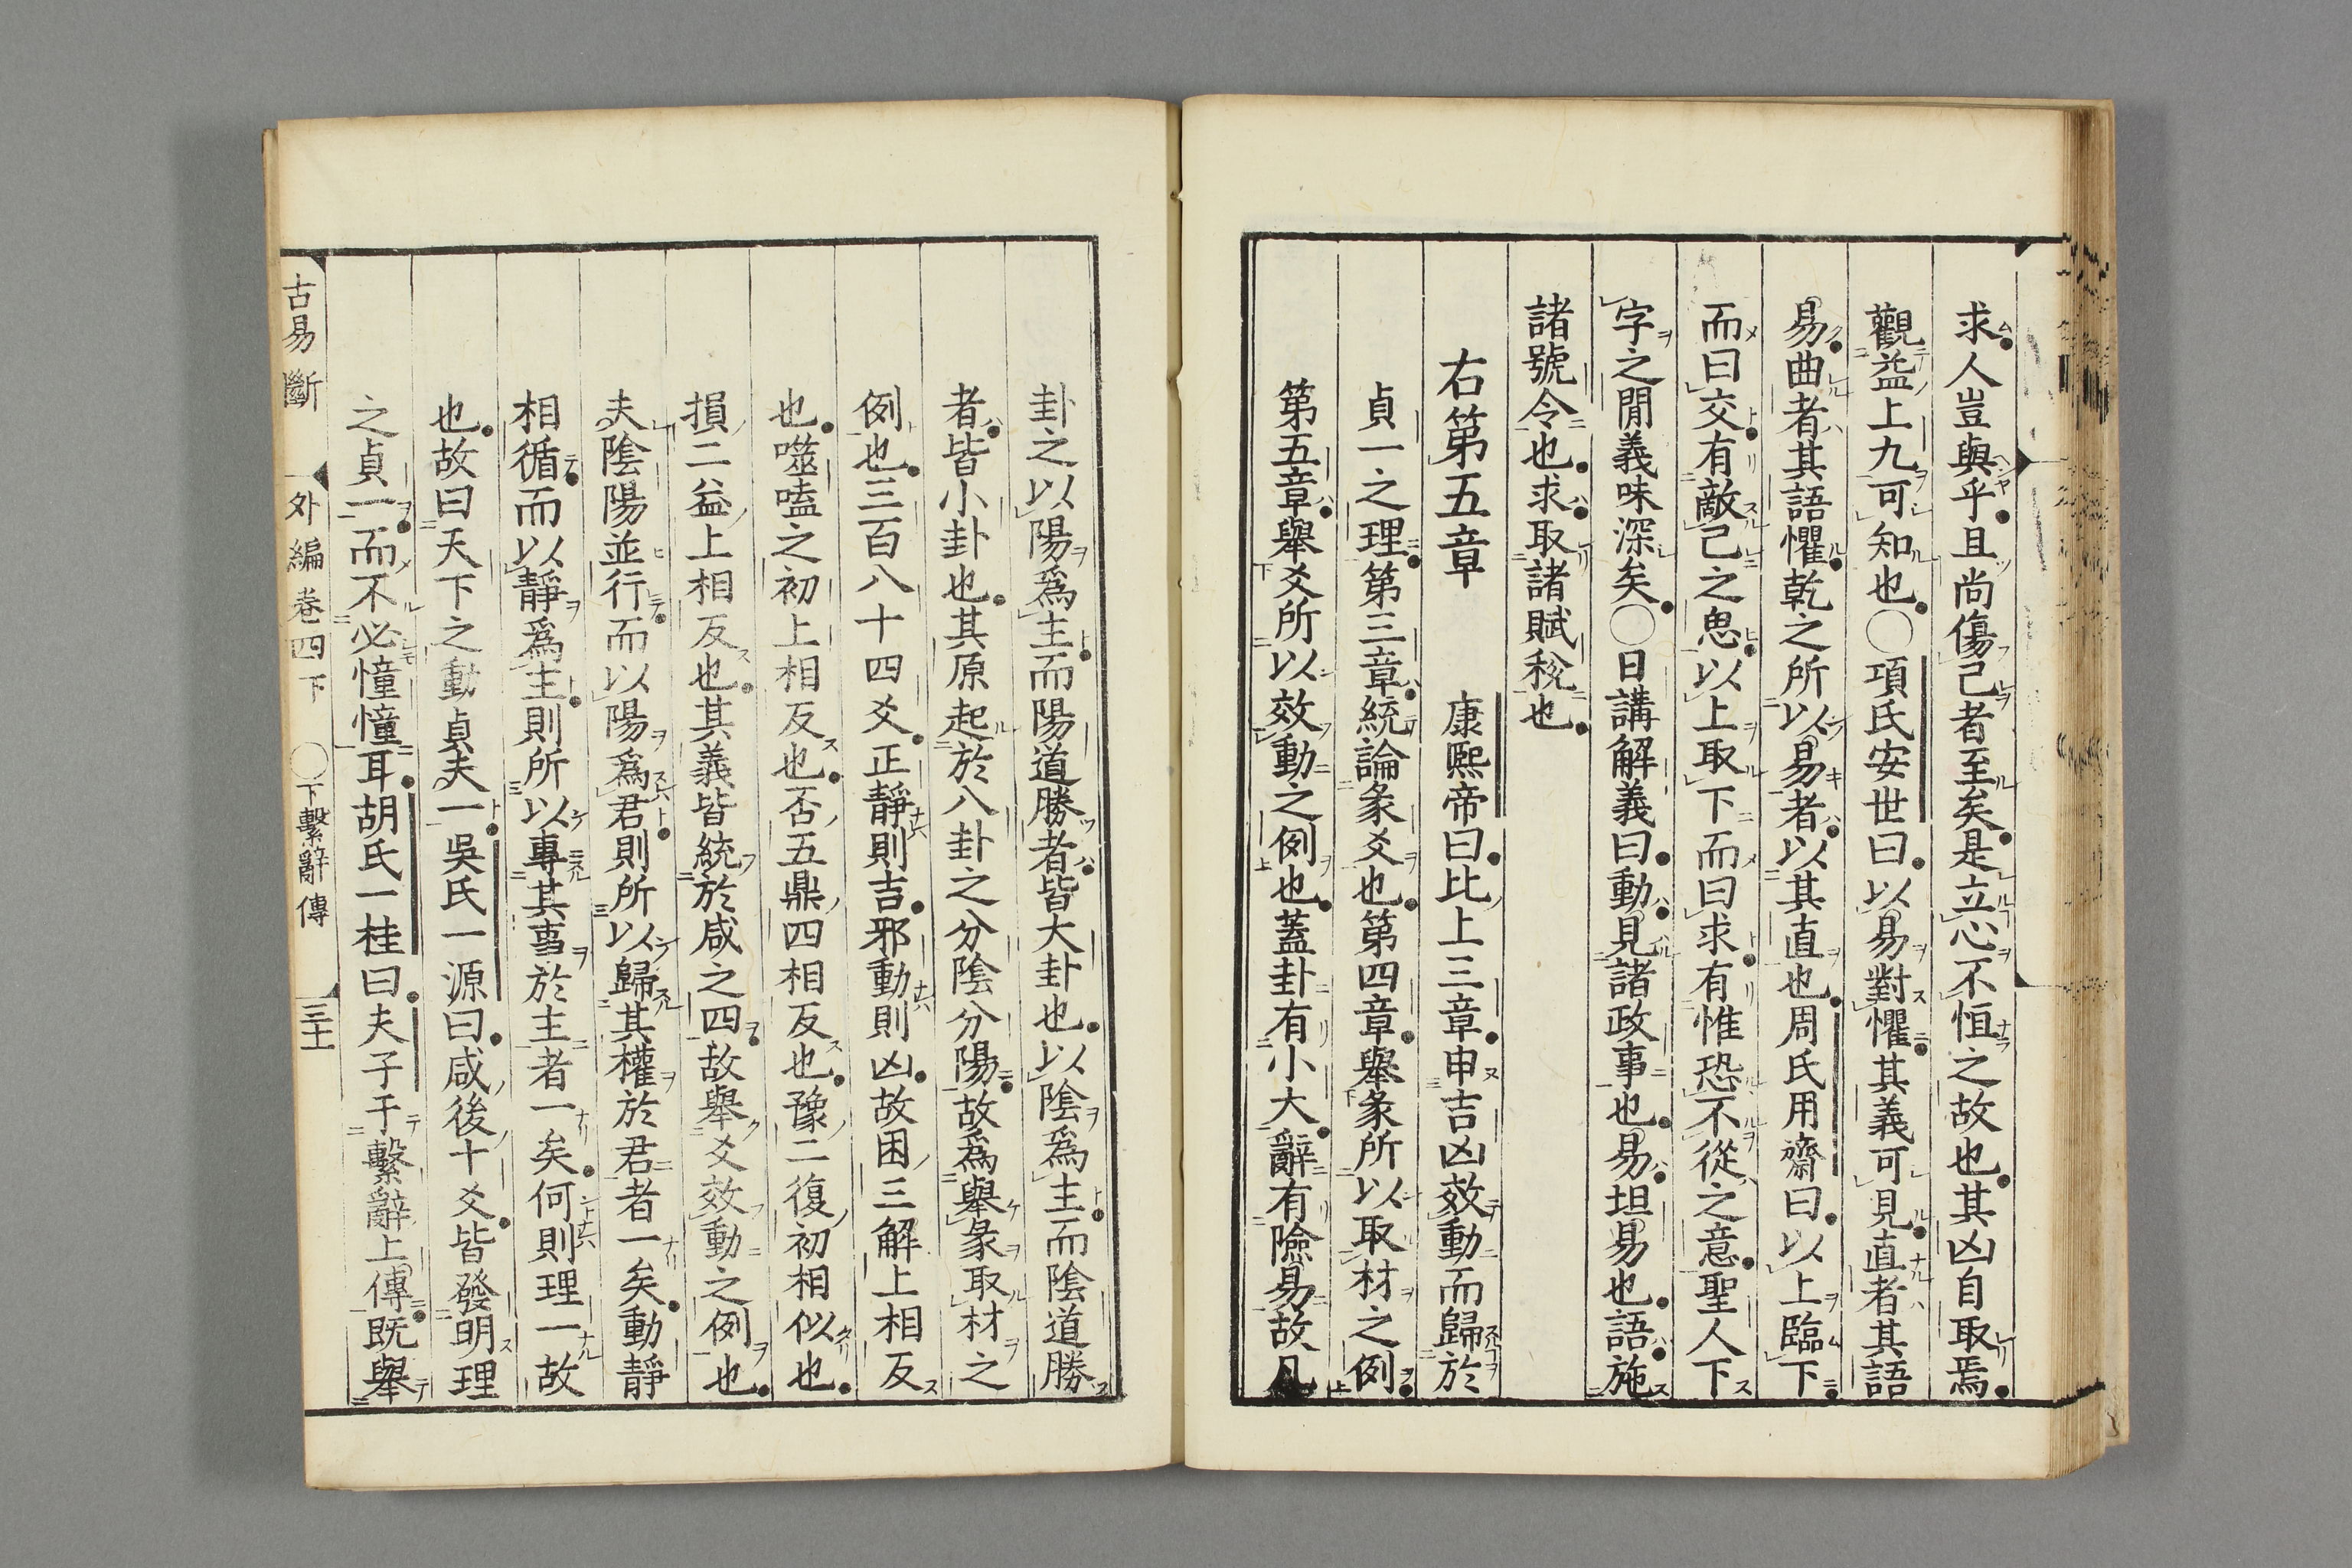 求人豈與乎且尚傷己者至矣是立心不恒之故也其凶自取焉
觀益上九可知也○項氏安世曰以易對懼其義可見直者其語
易曲者其語懼乾之所以易者以其直也周氏用齋曰以上臨下
而曰交有敵己之思以上取下而曰求有惟恐不從之意聖人下
字之間義味深矣○日講解義曰動見諸政事也易坦易也語施
諸號令也求取諸賦稅也
右第五章　康熙帝曰比上三章申吉凶效動而歸於
貞一之理第三章統論彖爻也第四章舉彖所以取材之例
第五章舉爻所以效動之例也蓋卦有小大辭有險易故凡
卦之以陽爲主而陽道勝者皆大卦也以陰爲主而陰道勝
者皆小卦也其原起於八卦之分陰分陽故爲舉彖取材之
例也三百八十四爻正靜則吉邪動則凶故困三解上相反
也噬嗑之初上相反也否五鼎四相反也豫二復初相似也
損二益上相反也其義皆統於咸之四故舉爻效動之例也
夫陰陽並行而以陽爲君則所以歸其權於君者一矣動靜
相循而以靜爲主則所以專其事於主者一矣何則理一故
也故曰天下之動貞夫一吳氏一源曰咸後十爻皆發明理
之貞一而不必憧憧耳胡氏一桂曰夫子于繫辭上傳既舉
古易斷　外編卷四下　○下繫辭傳　三十